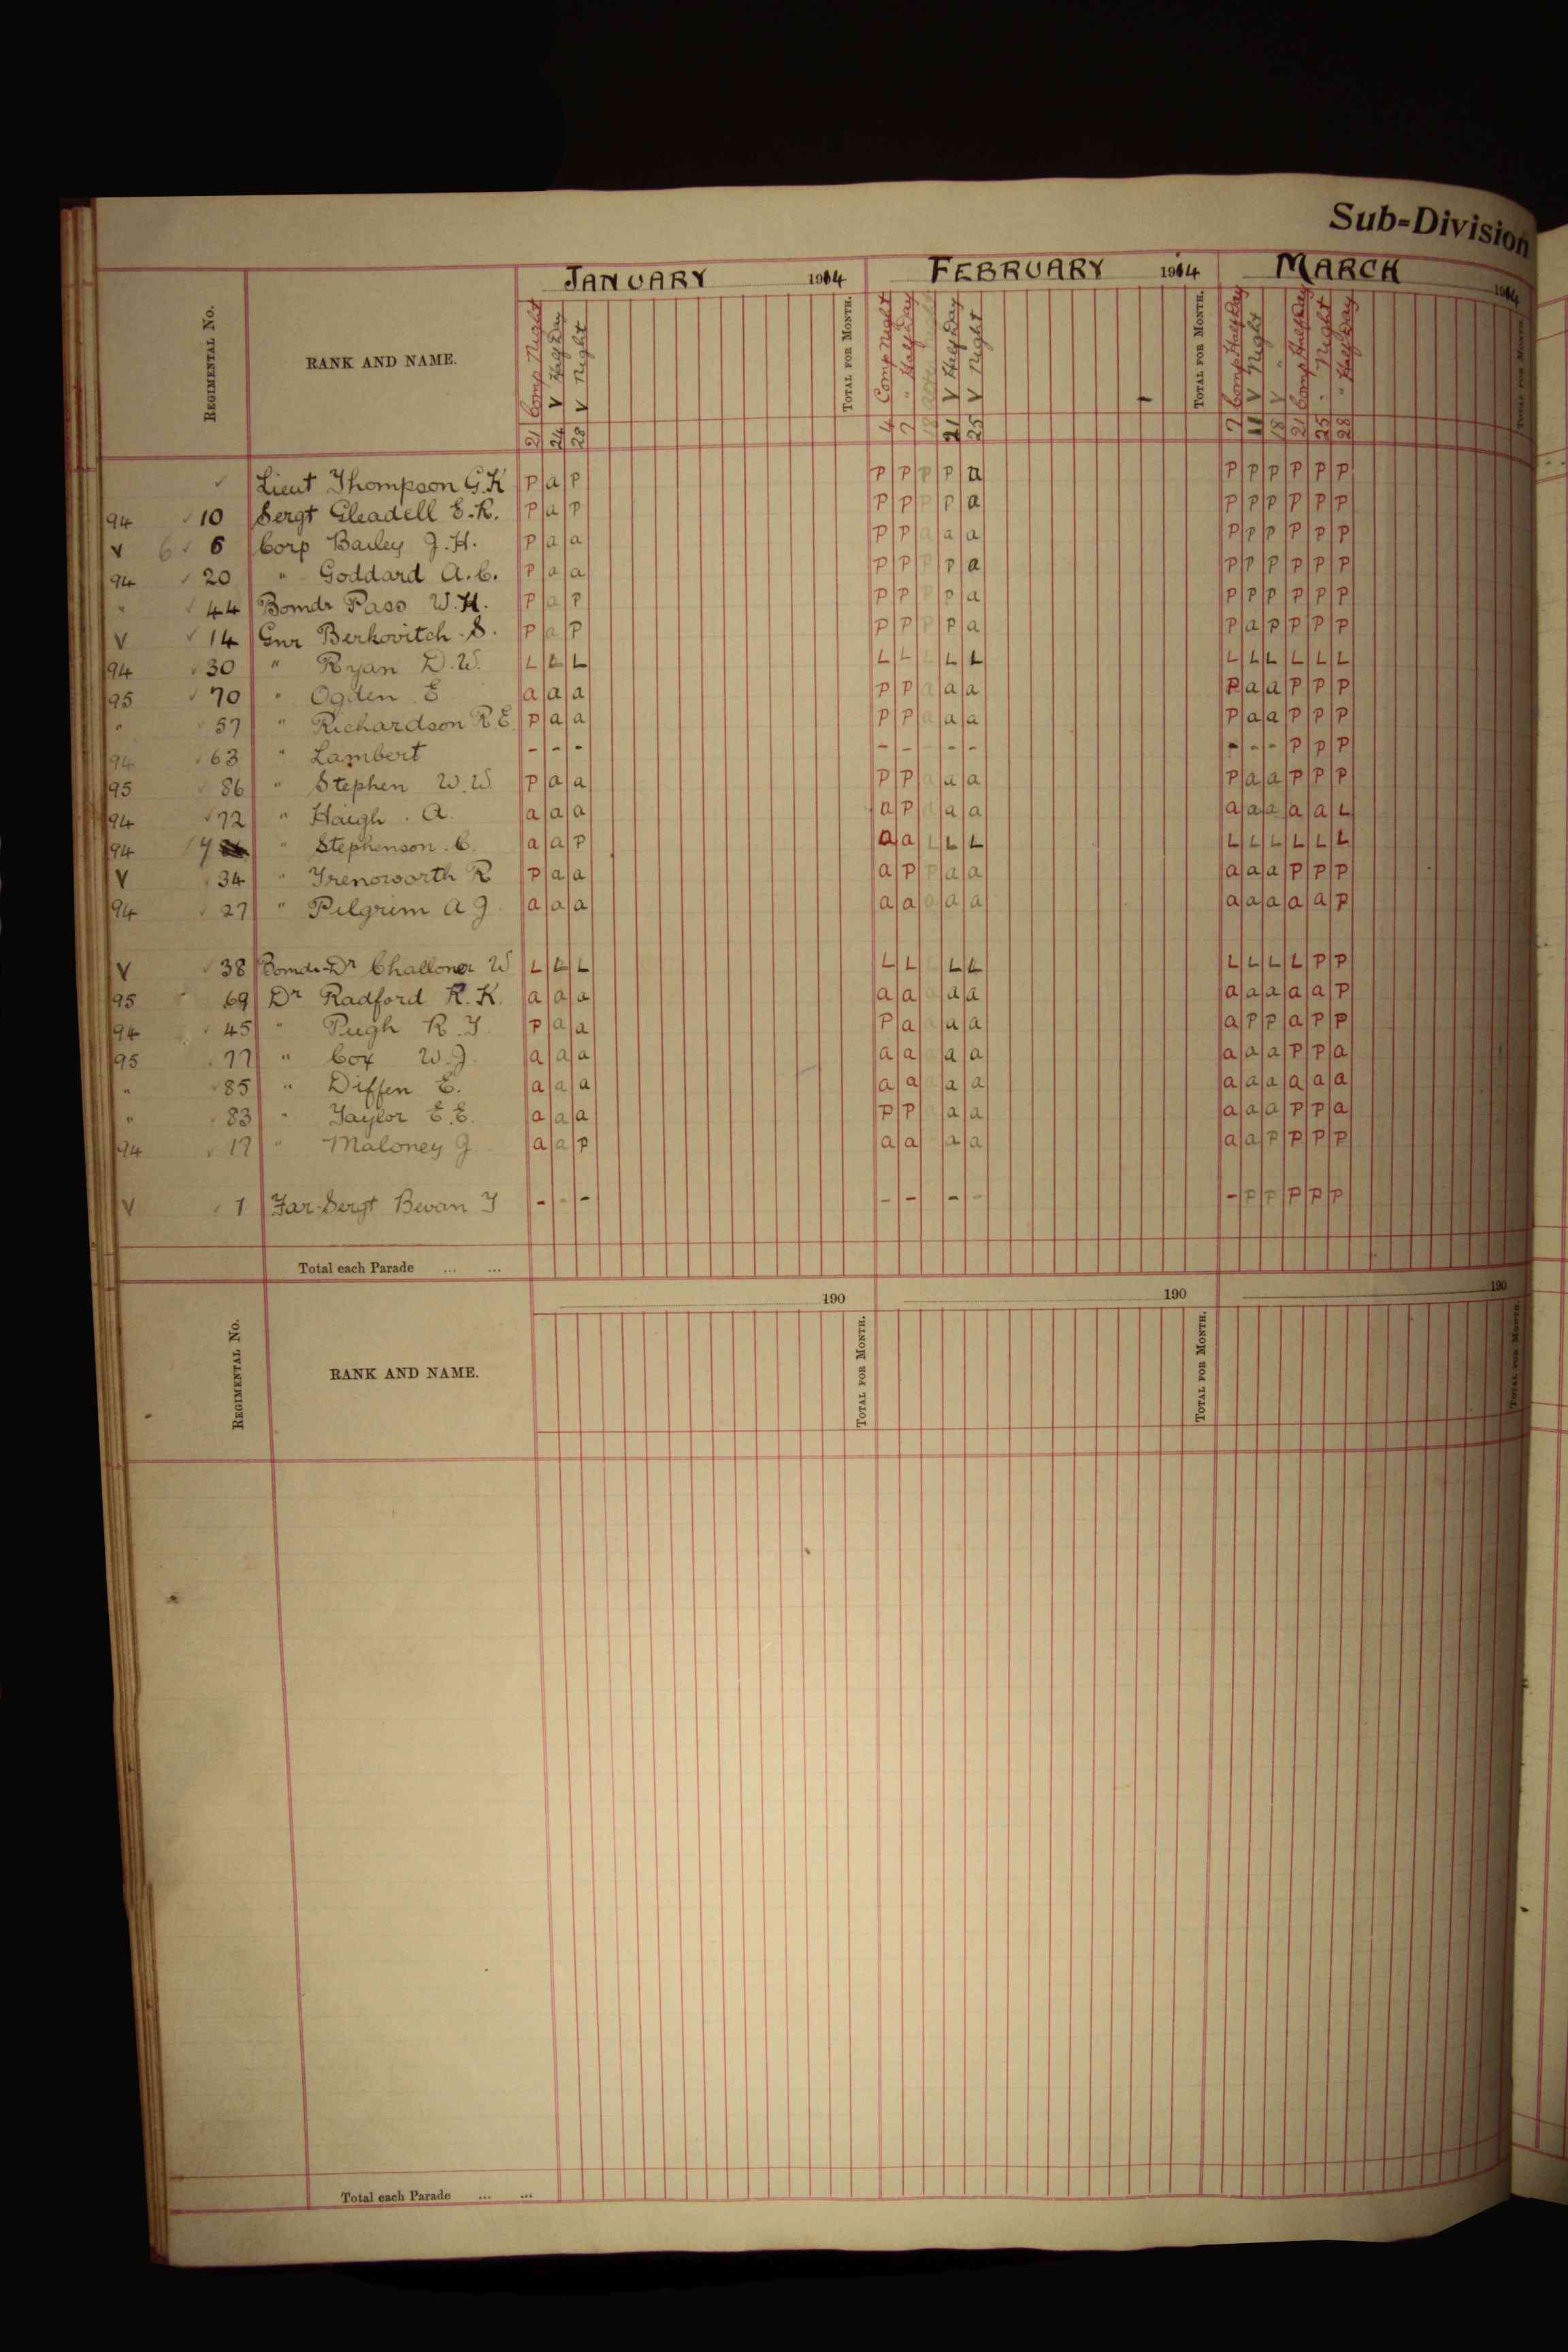 Sub-Division
JANUARY 1914 FEBRUARY 1914 MARCH 1914
REGIMENTAL NO. RANK AND NAME. TOTAL FOR MONTH. TOTAL FOR MONTH. TOTAL FOR MONTH.
Comp Night V Half Day V Night Comp Night " Half Day V Half Day V Night Comp Half Day V Night V " Comp Half Day " Night " Half Day
21 24 28 4 7 18 21 25 7 11 18 21 25 28
✓ Lieut Thompson G.K P a P P P P P a P P P P P P
94 ✓ 10 Sergt Gleadell E.R. P a P P P P P a P P P P P P
V 6 ✓ 6 Corp Bailey J.H. P a a P P a a a P P P P P P
94 ✓ 20 " Goddard A.C. P a a P P P P a P P P P P P
" ✓ 44 Bomdr Pass W.H. P a P P P P P a P P P P P P
V ✓ 14 Gnr Berkovitch S. P a P P P P P a P a P P P P
94 ✓ 30 " Ryan D.W. L L L L L L L L L L L L L L
95 ✓ 70 " Ogden E a a a P P a a a P a a P P P
" ✓ 57 " Richardson R.E. P a a P P a a a P a a P P P
94 ✓ 63 " Lambert - - - - - - - - - - - P P P
95 ✓ 86 " Stephen W.W. P a a P P a a a P a a P P P
94 ✓ 72 " Haigh . A. a a a a P a a a a a a a a L
94 ✓ " Stephenson . C. a a P a a L L L L L L L L L
V ✓ 34 " Trenoworth R P a a a P P a a a a a P P P
94 ✓ 27 " Pilgrim A J. a a a a a a a a a a a a a P
V ✓ 38 Bomdr-Dr Challoner W L L L L L L L L L L L P P
95 69 Dr Radford R.K. a a a a a a a a a a a a a P
94 ✓ 45 " Pugh R.T. P a a P a a a a P P a P P
95 ✓ 77 " Cox W.J. a a a a a a a a a a a P P a
" ✓ 85 " Diffen E. a a a a a a a a a a a a a a
" ✓ 83 " Taylor E.E. a a a P P a a a a a P P a
94 ✓ 17 " Maloney J. a a P a a a a a a P P P P
V ✓ 1 Far-Sergt Bevan T - - - - - - - - P P P P P
Total each Parade ... ...
190 190 190
REGIMENTAL NO. RANK AND NAME. TOTAL FOR MONTH. TOTAL FOR MONTH. TOTAL FOR MONTH.
Total each Parade ... ...